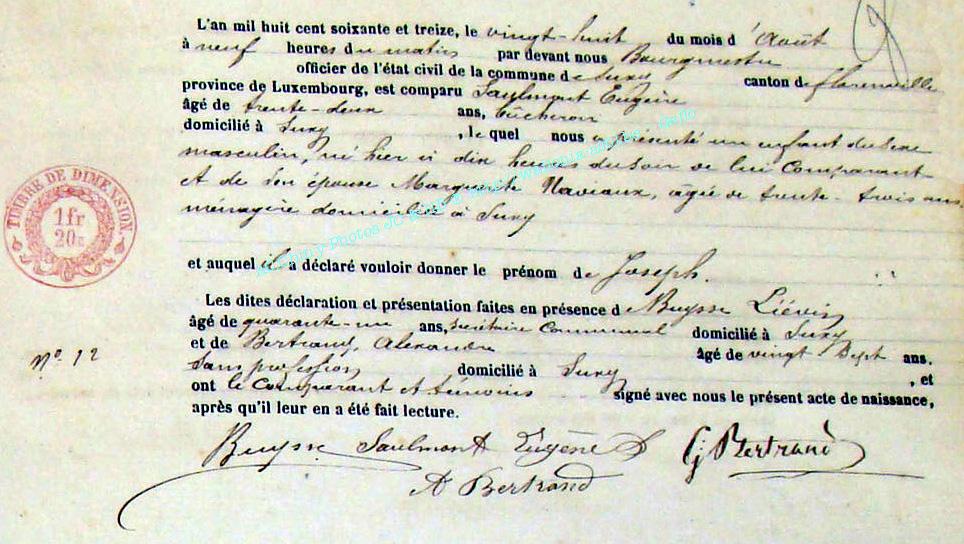 L'an mil huit cent soixante et treize, le vingt-huit du mois d'Août
à neuf heures du matin par devant nous Bourgmestre
officier de l'état civil de la commune de Suxy canton de florenville
province de Luxembourg, est comparu Saulmont Eugène
âgé de trente-deux ans, bûcheron
domicilié à Suxy, lequel nous a présenté un enfant du sexe
masculin, né hier à dix heures du soir de lui Comparant
et de son épouse Marguerite Naviaux, agée de trente-trois ans
ménagère domiciliés à Suxy
TIMBRE DE DIMENSION
1 fr
20 c
et auquel il a déclaré vouloir donner le prénom de Joseph.
Les dites déclaration et présentation faites en présence de Buysse Liévin
âgé de quarante-un ans, secrétaire Communal domicilié à Suxy
et de Bertrand, Alexandre âgé de vingt Sept ans.
Sans profession domicilié à Suxy, et
No. 12
ont le Comparant et témoins signé avec nous le présent acte de naissance,
après qu'il leur en a été fait lecture.
Buysse Saulmont Eugène G Bertrand
A Bertrand